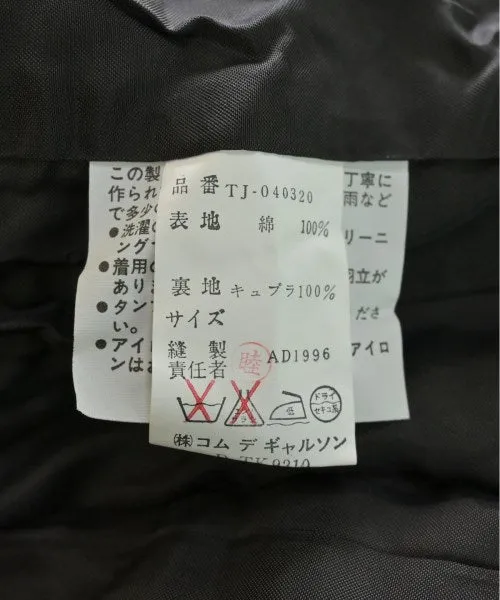 品番 TJ-040320
表地 綿 100%
裏地 キュプラ100%
サイズ
縫製 AD1996
責任者 睦
低
ドライ
セキユ系
(株)コム デ ギャルソン
この製
作られ
で多少
●洗濯の
ング
●着用の
ありま
●タン
い。
●アイ
ンはお
丁寧に
雨など
リーニ
羽立が
ださ
アイロ